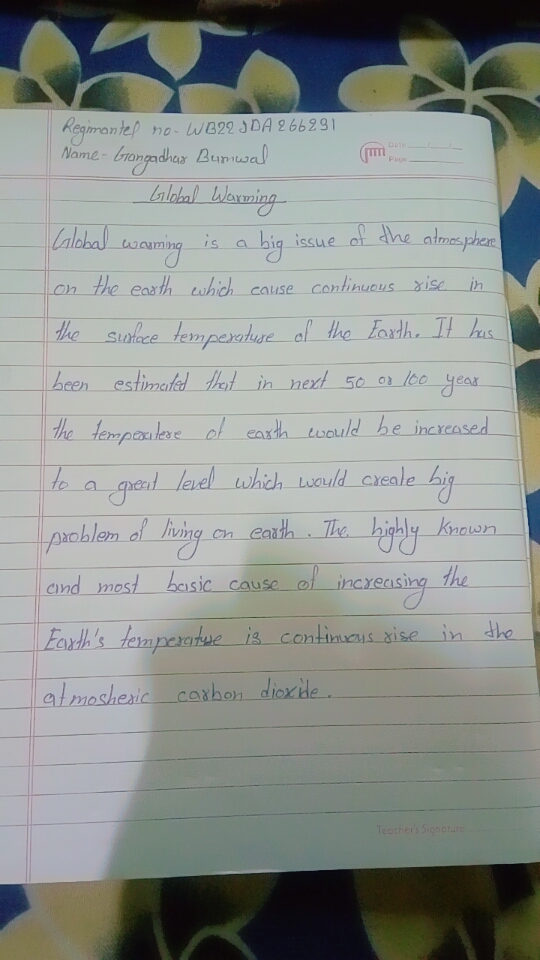 Regimantel no- WB22JDA266291
Name- Gangadhar Burnwal
Date
Page
Global Warming
Global warming is a big issue of the atmosphere
on the earth which cause continuous rise in
the surface temperature of the Earth. It has
been estimated that in next 50 or 100 year
the temperatere of earth would be increased
to a great level which would create big
problem of living on earth. The highly known
and most basic cause of increasing the
Earth's temperature is continuous rise in the
atmosheric carbon dioxide.
Teacher's Signature